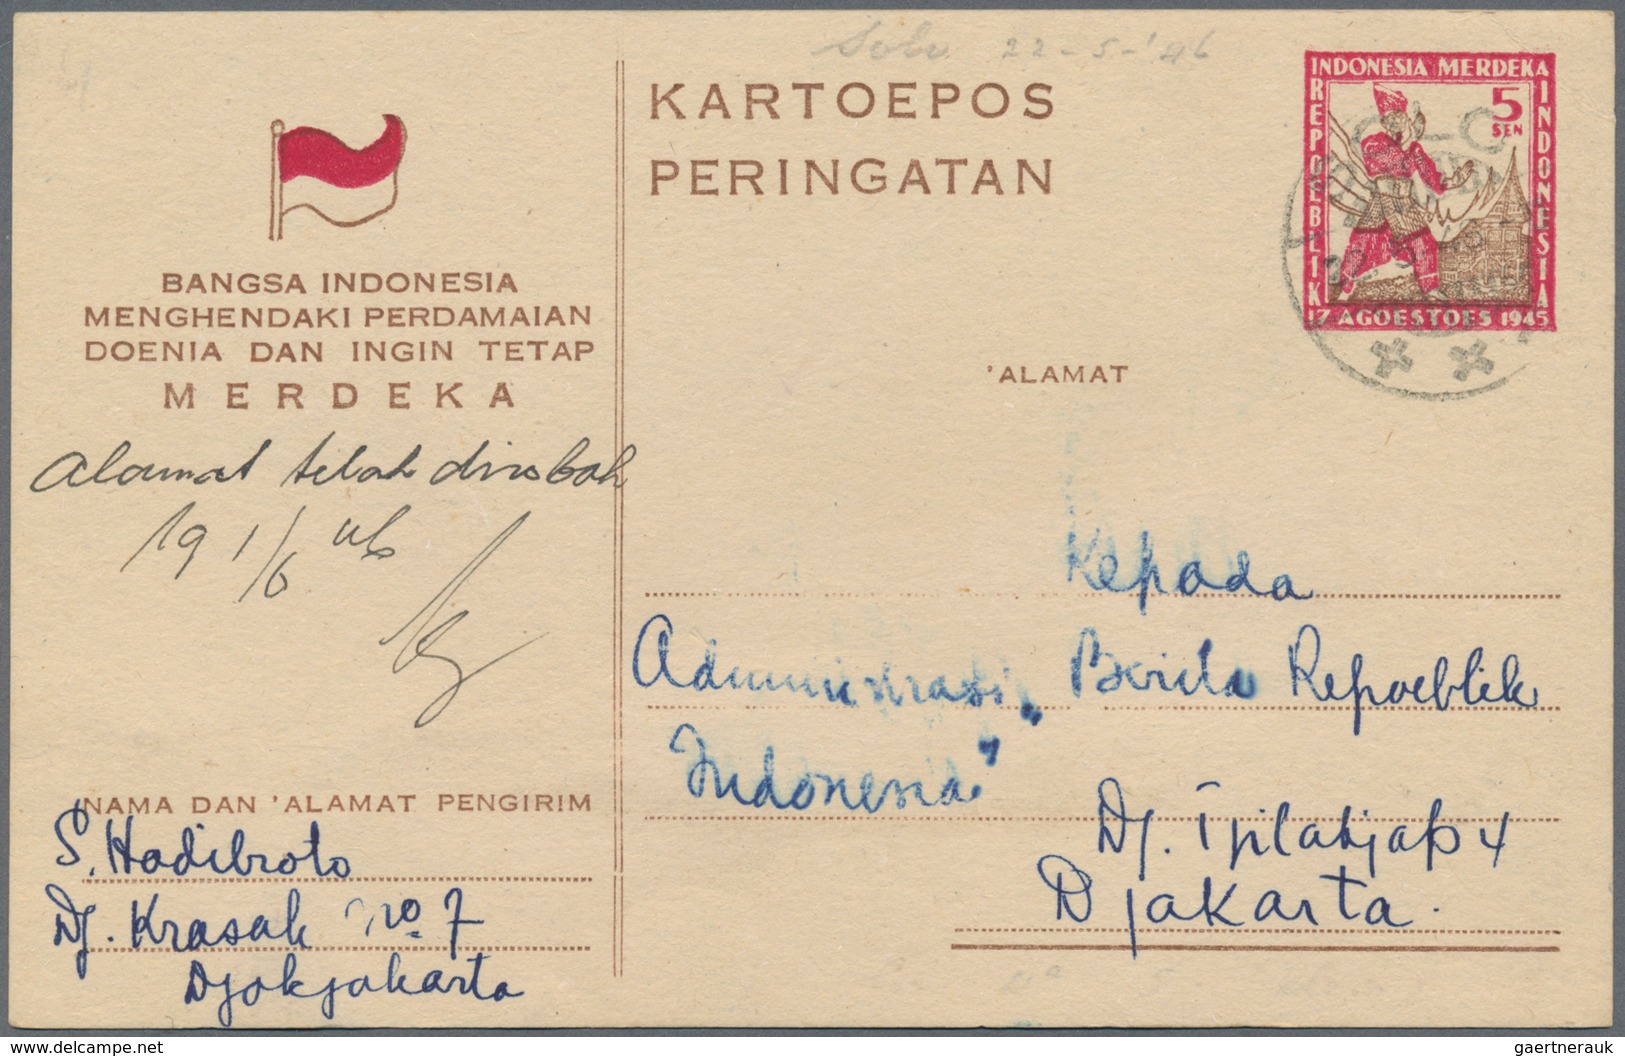 Solo 22-5-'46
KARTOEPOS
PERINGATAN
INDONESIA MERDEKA
REPOEBLIK
INDONESIA
5
SEN
17 AGOESTOES 1945
BANGSA INDONESIA
MENGHENDAKI PERDAMAIAN
DOENIA DAN INGIN TETAP
MERDEKA
'ALAMAT
Alamat telah dirobah
19 1/6 46
Kepada
Administrasi „ Berita Repoeblik
Indonesia"
Dj. Tjilatjap 4
Djakarta.
NAMA DAN 'ALAMAT PENGIRIM
S. Hadibroto
Dj. Krasak No 7
Djokjakarta
delcampe.net
gaertnerauk